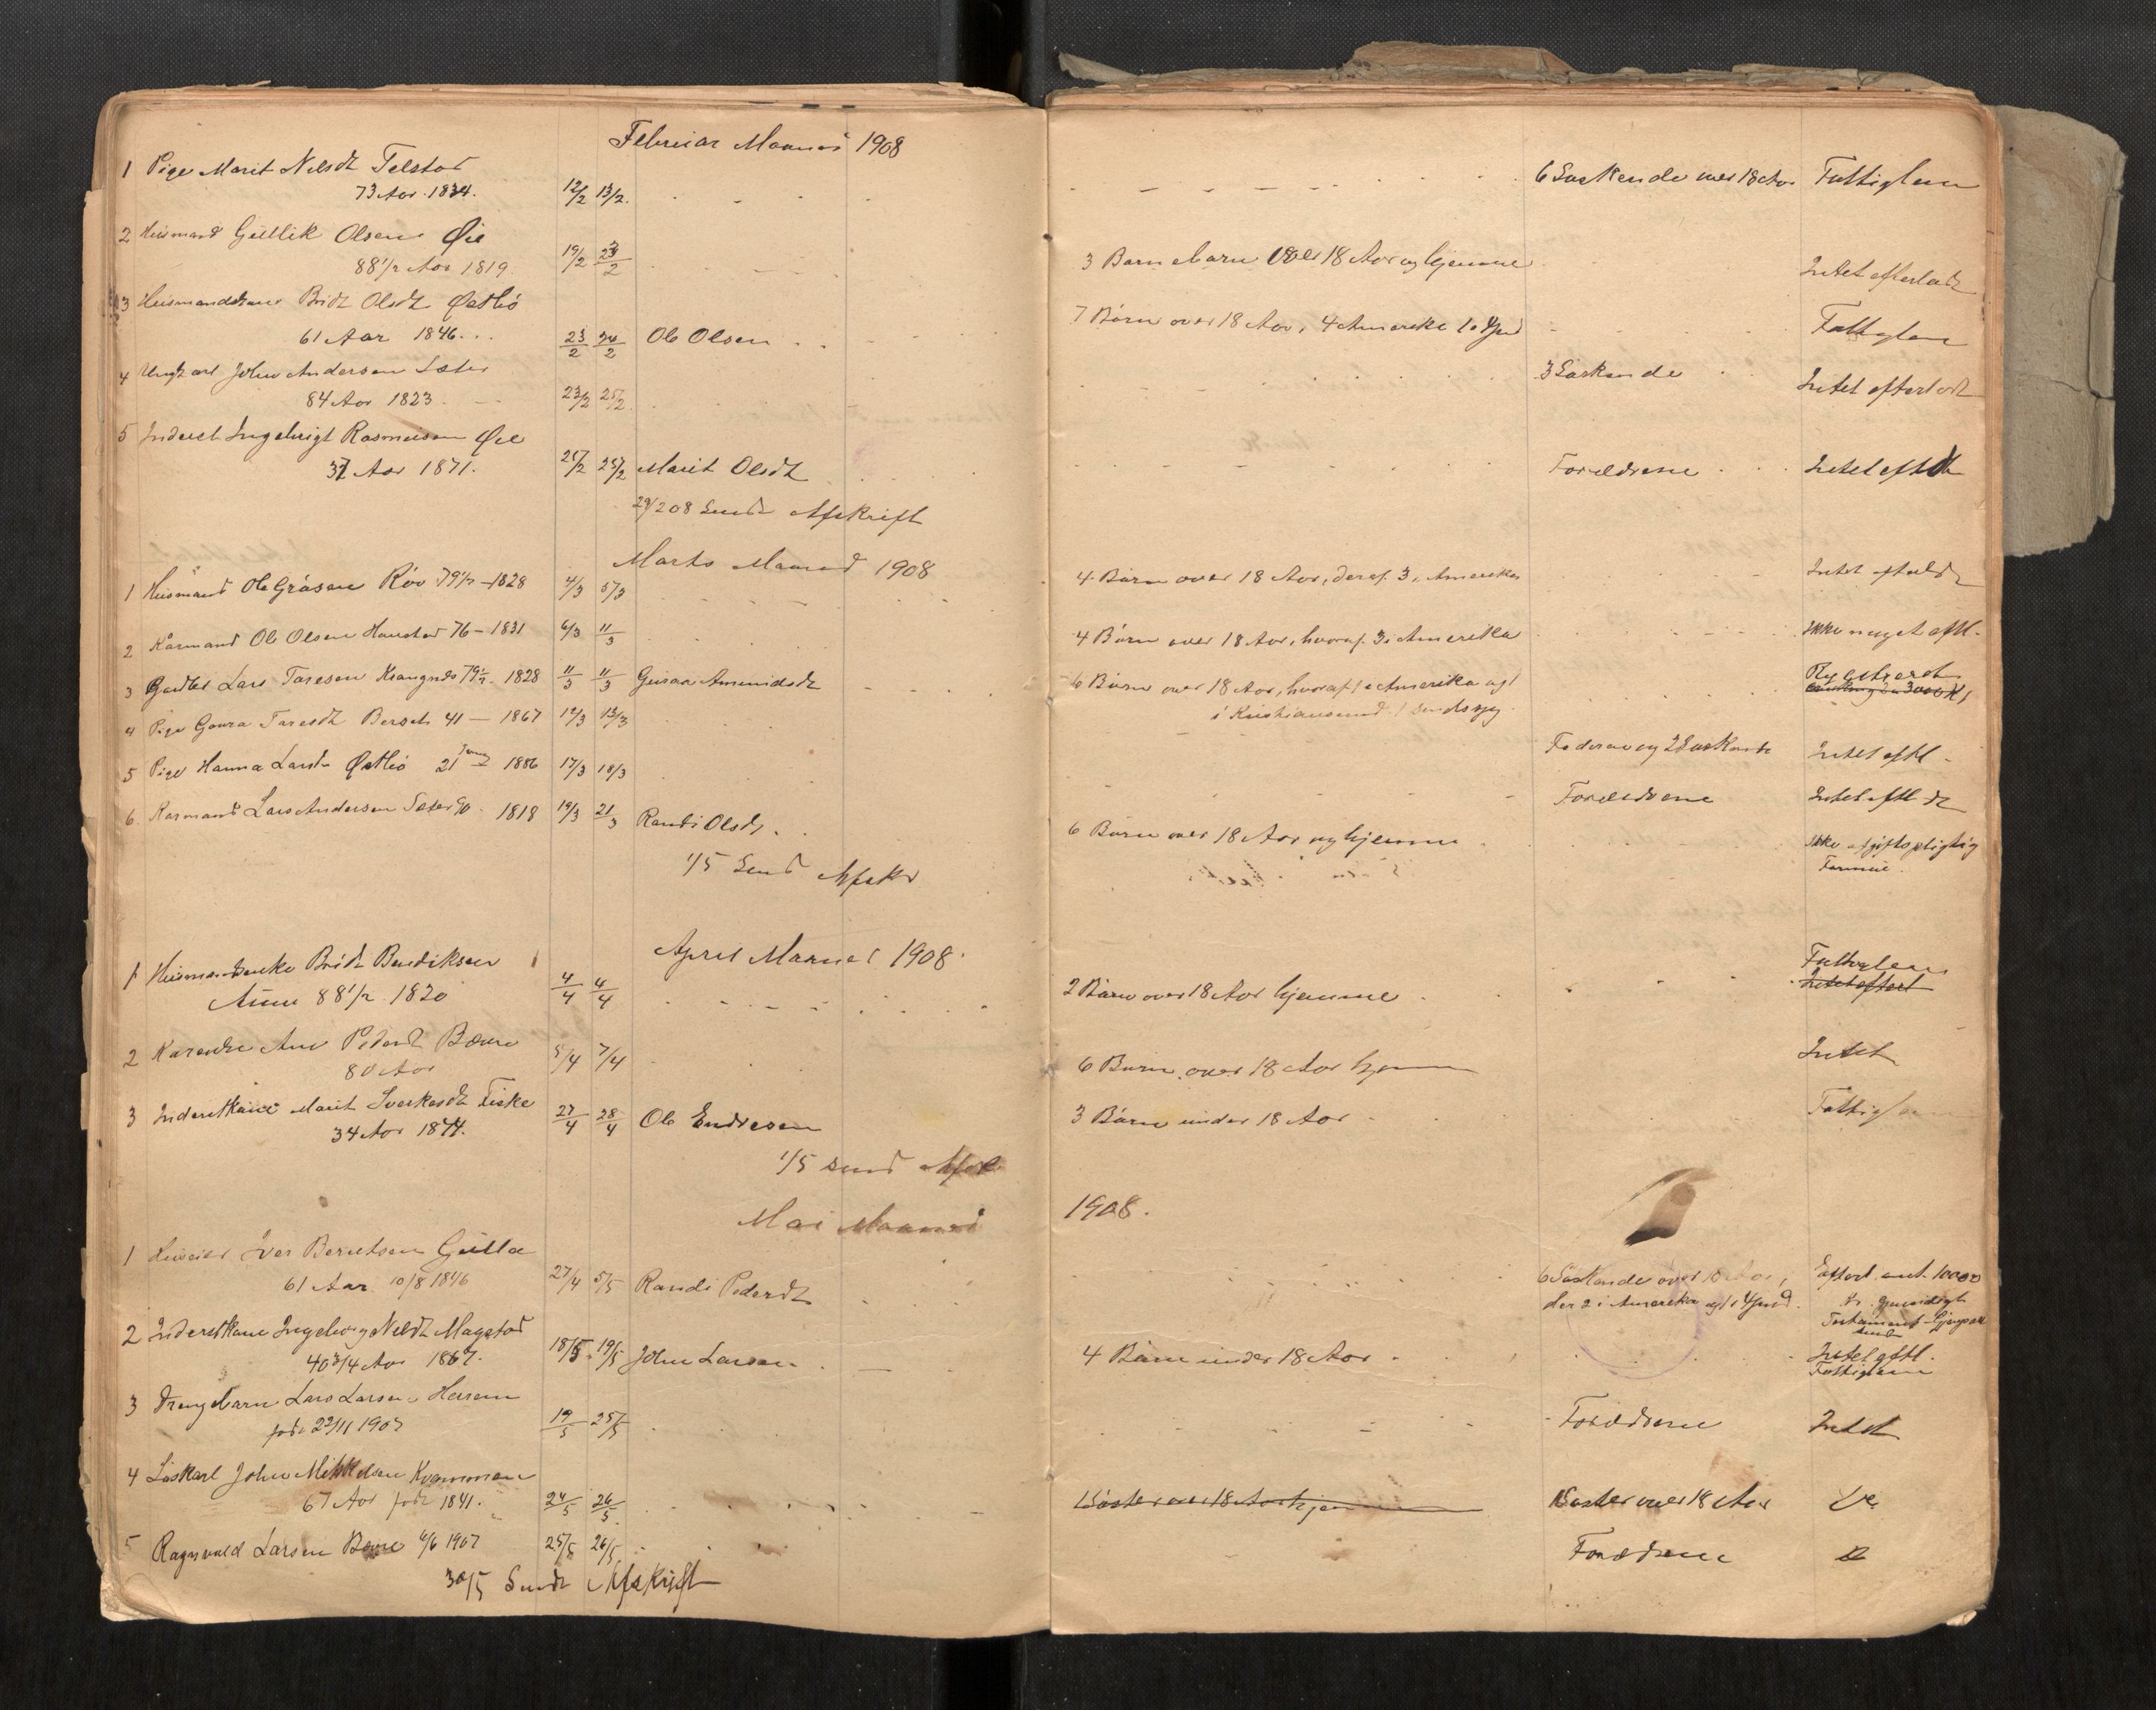 Februar Maaned 1908
1 Pige Marit Nilsdt Telstad
73 Aar. 1834. 12/2 13/2. 6 Søskende over 18 Aar Fattiglem
2 Husmand Gullik Olsen Øie
88 1/2 Aar 1819 19/2 23/2 3 Barnebarn over 18 Aar og hjemme Intet efterladt
3 Husmandskone Bridt Olsdt Østbø
61 Aar 1846... 23/2 24/2 Ole Olsen 7 Børn over 18 Aar, 4 Amerika Fattiglem
4 Ungkarl John Andersen Sæter
84 Aar 1823 23/2 25/2 3 Søskende Intet efterladt
5 Inderst Ingebrigt Rasmusen Øie
37 Aar 1871. 25/2 Marit Olsdt Forældrene Intet eftl
29/2 08 Sendt Afskrift
Marts Maaned 1908
1 Husmand Ole Gråsen Röv 79 1/2 - 1828 4/3 5/3 4 Børn over 18 Aar, deraf 3 i Amerika Intet eftladt
2 Kårmand Ole Olsen Haustad 76 - 1831 6/3 11/3 4 Børn over 18 Aar, hvoraf 3 i Amerika Ikke noget eftl.
3 Gardbr Lars Toresen Krangnes 79 1/2. 1828 11/3 11/3 Guraa Amundsdt 6 Børn over 18 Aar, hvoraf 1 i Amerika og 1
i Kristiansund 3000 Kr
4 Pige Goura Toresdt Berset 41 - 1867 12/3 13/3 Faderen og 2 Søskende Intet eftl.
5 Pige Hanna Larsdt Østbö 21 1886 17/3 18/3 Forældrene Intet eftl dt
6 Karmand Lars Andersen Sæter 90. 1818 19/3 21/3 Randi Olsdt. 6 Børn over 18 Aar og hjemme Ikke afgiftspligtig
Formue.
1/5 Send Afskr
April Maaned 1908.
1 Husmandsenke Bridt Bendiksen
Aune 88 1/2. 1820 4/4 4/4 2 Børn over 18 Aar hjemme Fattiglem
Intet efterl
2 Kårenke Ane Pedersdt Bævre
80 Aar 5/4 7/4 6 Børn over 18 Aar hjemme Intet
3 Inderstkone Marit Sverkesdt Fiske
34 Aar 1874. 27/4 28/4 Ole Endresen 3 Børn under 18 Aar Fattiglem
1/5 send Afsk
Mai Maaned 1908.
1 Iver Berntsen Gulla
61 Aar 10/8 1846 27/4 5/5 Randi Pedersdt 6 Søskende over 18 Aar,
der 2 i Amerika Efterl. ant. 10000
Kr. gjensidigt
Testament
2 Inderstkone Ingeborg Nilsdt Magstad
40 3/4 Aar 1867. 18/5 19/5 John Larsen 4 Børn under 18 Aar Intet eftl.
Fattiglem
3 Drengebarn Lars Larsen Harem
född 22/11 1907 19/5 25/5 Forældrene Intet
4 Løskarl John Mikkelsen Kvammen
67 Aar född 1841. 24/5 26/5 1 Søster over 18 Aar hjemme 1 Søster over 18 Aar
5 Ragnvald Larsen Bævre 6/6 1907 25/5 26/5 Forældrene
30/5 Sendt Afskrift